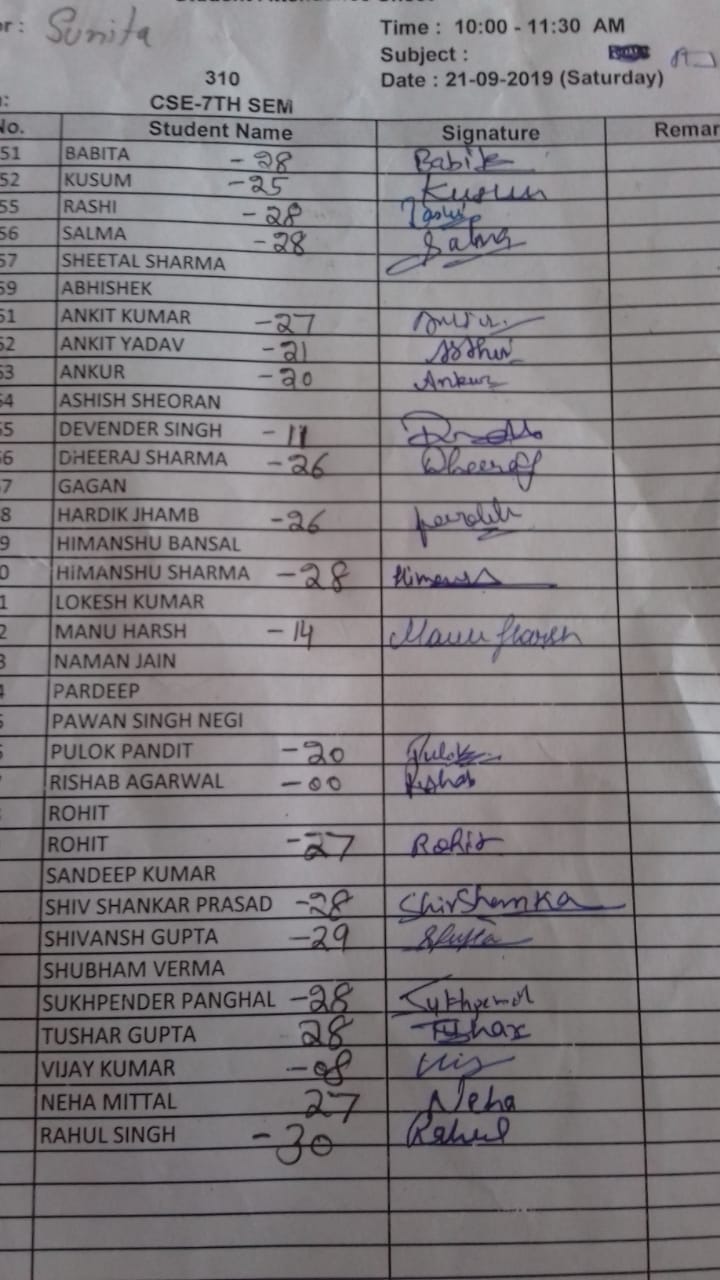 Student Attendance Sheet
or : Sunita Time : 10:00 - 11:30 AM
Subject :
310 Date : 21-09-2019 (Saturday)
CSE-7TH SEM
No. Student Name Signature Remar
51 BABITA -28 Babita
52 KUSUM -25 Kusum
55 RASHI -28 Rashi
56 SALMA -28 Salma
57 SHEETAL SHARMA
59 ABHISHEK
51 ANKIT KUMAR -27
52 ANKIT YADAV -21
53 ANKUR -20 Ankur
54 ASHISH SHEORAN
55 DEVENDER SINGH -11
56 DHEERAJ SHARMA -26 Dheeraj
7 GAGAN
8 HARDIK JHAMB -26 Hardik
9 HIMANSHU BANSAL
0 HIMANSHU SHARMA -28
1 LOKESH KUMAR
2 MANU HARSH -14 Manu Harsh
3 NAMAN JAIN
4 PARDEEP
5 PAWAN SINGH NEGI
PULOK PANDIT -20 Pulok
RISHAB AGARWAL -00 Rishab
ROHIT
ROHIT -27 Rohit
SANDEEP KUMAR
SHIV SHANKAR PRASAD -28
SHIVANSH GUPTA -29
SHUBHAM VERMA
SUKHPENDER PANGHAL -28
TUSHAR GUPTA 28 Tushar
VIJAY KUMAR -08
NEHA MITTAL 27 Neha
RAHUL SINGH -30 Rahul